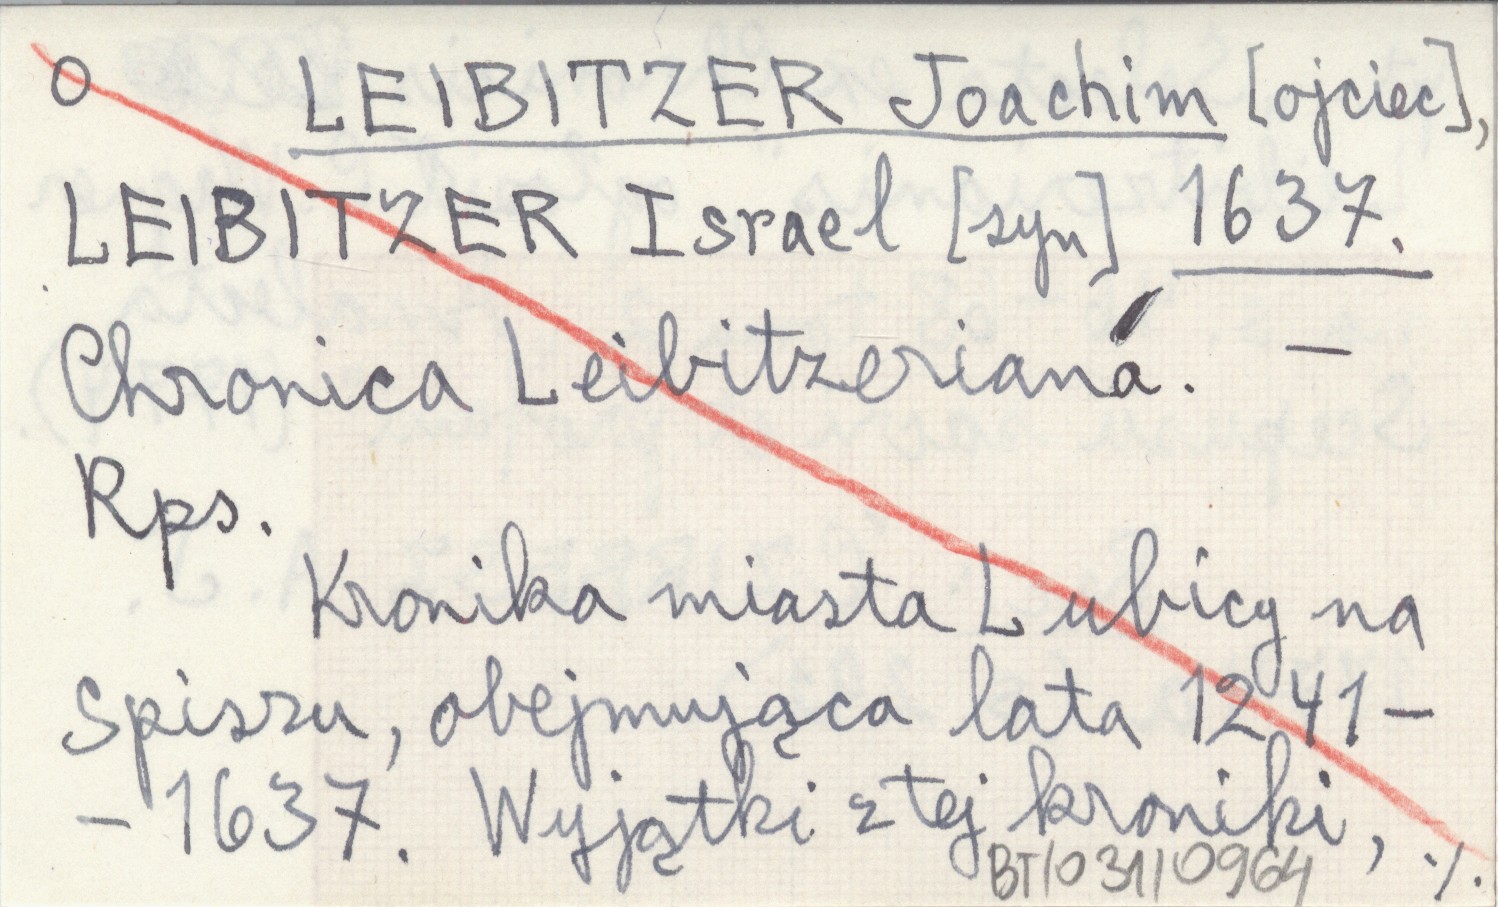 O LEIBITZER Joachim [ojciec],
LEIBITZER Israel [syn] 1637.
Chronica Leibitzeriana. –
Rps.
Kronika miasta Lubicy na
Spiszu, obejmująca lata 1241–
– 1637. Wyjątki z tej kroniki,
BT/031/0964 ·/.